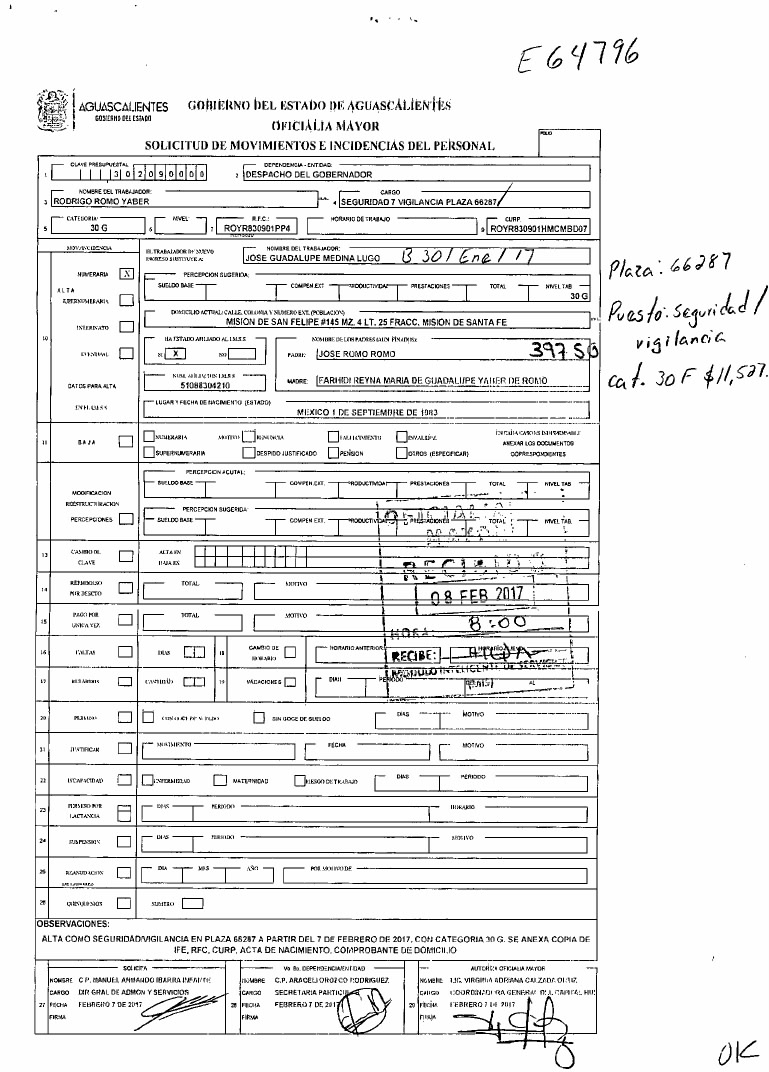 E64796
AGUASCALIENTES
GOBIERNO DEL ESTADO
GOBIERNO DEL ESTADO DE AGUASCALIENTES
OFICIALIA MAYOR
SOLICITUD DE MOVIMIENTOS E INCIDENCIAS DEL PERSONAL
FOLIO
CLAVE PRESUPUESTAL DEPENDENCIA - ENTIDAD:
1 302090000 2 DESPACHO DEL GOBERNADOR
NOMBRE DEL TRABAJADOR: CARGO
3 RODRIGO ROMO YABER 4 SEGURIDAD 7 VIGILANCIA PLAZA 66287
CATEGORIA: NIVEL: R.F.C.: HORARIO DE TRABAJO CURP.
5 30 G 6 7 ROYR830901PP4 9 ROYR830901HMCMBD07
MOV/INCIDENCIA EL TRABAJADOR DE NUEVO INGRESO SUSTITUYE A: NOMBRE DEL TRABAJADOR:
JOSE GUADALUPE MEDINA LUGO B 30/Ene/17
NUMERARIA X PERCEPCION SUGERIDA:
SUELDO BASE COMPEN.EXT. PRODUCTIVIDAD PRESTACIONES TOTAL NIVEL TAB
30 G
ALTA
SUPERNUMERARIA
DOMICILIO ACTUAL: CALLE, COLONIA Y NUMERO EXT. (POBLACION)
MISION DE SAN FELIPE #145 MZ. 4 LT. 25 FRACC. MISION DE SANTA FE
Plaza: 66287
Puesto: Seguridad/
vigilancia
cat. 30F $11,527.
10 INTERINATO
HA ESTADO AFILIADO AL I.M.S.S NOMBRE DE LOS PADRES (AUN FINADOS):
EVENTUAL SI X NO PADRE: JOSE ROMO ROMO 397 50
DATOS PARA ALTA
EN EL I.M.S.S
NUM. AFILIACION I.M.S.S
51088304210 MADRE: FARHIDI REYNA MARIA DE GUADALUPE YABER DE ROMO
LUGAR Y FECHA DE NACIMIENTO (ESTADO)
MEXICO 1 DE SEPTIEMBRE DE 1983
11 BAJA NUMERARIA MOTIVO: RENUNCIA FALLECIMIENTO INVALIDEZ
SUPERNUMERARIA DESPIDO JUSTIFICADO PENSION OTROS (ESPECIFICAR)
ANEXAR LOS DOCUMENTOS
CORRESPONDIENTES
PERCEPCION ACUTAL:
SUELDO BASE COMPEN.EXT. PRODUCTIVIDAD PRESTACIONES TOTAL NIVEL TAB
MODIFICACION
REESTRUCTURACION
PERCEPCIONES
PERCEPCION SUGERIDA:
SUELDO BASE COMPEN EXT. PRODUCTIVIDAD PRESTACIONES TOTAL NIVEL TAB.
OFICIALIA
MAYOR
13 CAMBIO DE CLAVE ALTA EN
BAJA EN
RECIBIDO
14 REEMBOLSO POR DESCTO TOTAL MOTIVO
08 FEB 2017
15 PAGO POR UNICA VEZ TOTAL MOTIVO
8:00
HORA:
16 FALTAS DIAS 18 CAMBIO DE HORARIO HORARIO ANTERIOR
RECIBE:
MODULO INTELIGENTE DE SERVICIOS
17 RETARDOS CANTIDAD 19 VACACIONES DIAS PERIODO AL
20 PERMISO CON GOCE DE SUELDO SIN GOCE DE SUELDO DIAS MOTIVO
21 JUSTIFICAR MOVIMIENTO FECHA MOTIVO
22 INCAPACIDAD ENFERMEDAD MATERNIDAD RIESGO DE TRABAJO DIAS PERIODO
23 PERMISO POR LACTANCIA DIAS PERIODO HORARIO
24 SUSPENSION DIAS PERIODO MOTIVO
25 REANUDACION DIA MES AÑO POR MOTIVO DE
26 QUINQUENIOS NUMERO
OBSERVACIONES:
ALTA COMO SEGURIDAD/VIGILANCIA EN PLAZA 66287 A PARTIR DEL 7 DE FEBRERO DE 2017, CON CATEGORIA 30 G. SE ANEXA COPIA DE
IFE, RFC, CURP, ACTA DE NACIMIENTO, COMPROBANTE DE DOMICILIO
SOLICITA Vo Bo. DEPENDENCIA/ENTIDAD AUTORIZA OFICIALIA MAYOR
NOMBRE C.P. MANUEL ARMANDO IBARRA INFANTE NOMBRE C.P. ARACELI OROZCO RODRIGUEZ NOMBRE LIC. VIRGINIA ADRIANA CALZADA
CARGO DIR GRAL DE ADMON Y SERVICIOS CARGO SECRETARIA PARTICULAR CARGO COORDINADORA GENERAL DEL CAPITAL HU
27 FECHA FEBRERO 7 DE 2017 28 FECHA FEBRERO 7 DE 2017 29 FECHA FEBRERO 7 DE 2017
FIRMA FIRMA FIRMA
OK